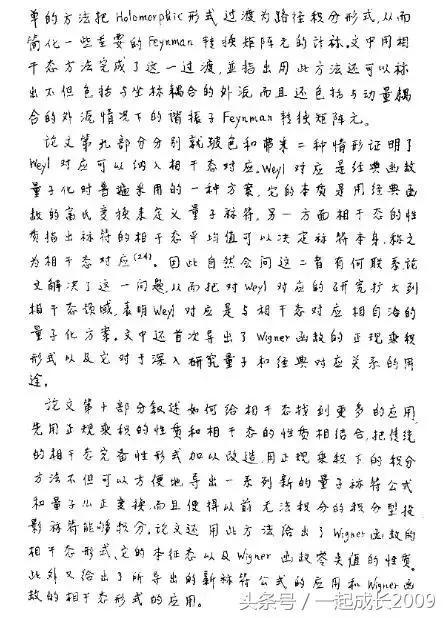 单的方法把 Holomorphic 形式过渡为路径积分形式,从而
简化一些重要的 Feynman 转换矩阵元的计算。文中用相
干态方法完成了这一过渡,並指出用此方法还可以标
出不但包括与坐标耦合的外源而且还包括与动量耦
合的外源情况下的谐振子 Feynman 转换矩阵元。
论文第九部分分别就玻色和费米二种情形证明了
Weyl 对应可以纳入相干态对应。Weyl 对应是经典函数
量子化时普遍采用的一种方案,它的本质是用经典函
数的富氏变换来定义量子算符,另一方面相干态的性
质指出算符的相干态平均值可以决定算符本身,称之
为相干态对应(24)。因此自然会问这二者有何联系论
文解决了这一问题,从而把对 Weyl 对应的研究扩大到
相干态领域,表明 Weyl 对应是与相干态对应相自洽的
量子化方案。文中还首次导出了 Wigner 函数的正规乘积
形式以及它对于深入研究量子和经典对应关系的用
途。
论文第十部分叙述如何给相干态找到更多的应用
先用正规乘积的性质和相干态的性质相结合,把传统
的相干态完备性形式加以改造,用正规乘积下的积分
方法不但可以方便地导出一系列新的量子算符公式
和量子么正变换,而且使得以前无法积分的积分型投
影算符能够积分。论文还用此方法给出了 Wigner 函数的
相干态形式、它的本征态以及 Wigner 函数零点值的性质。
此外又给出了所导出的新算符公式的应用和 Wigner 函
数的相干态形式的应用。
头条号 / 一起成长2009